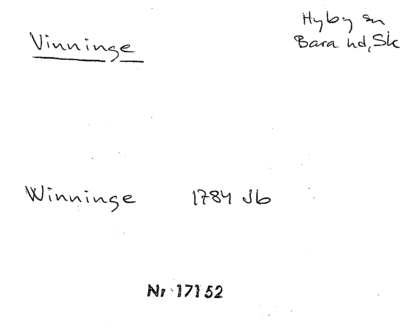 Vinninge
Hyby sn
Bara hd, Sk
Winninge 1784 Jb
Nr 17152